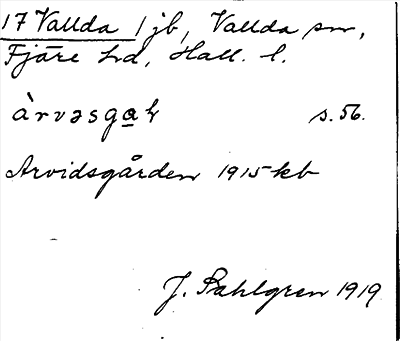 17 Vallda 1 jb, Vallda sn,
Fjäre hd, Hall. l.
àrvəsgaḷ s. 56.
Arvidsgården 1915 kb
J. Sahlgren 1919